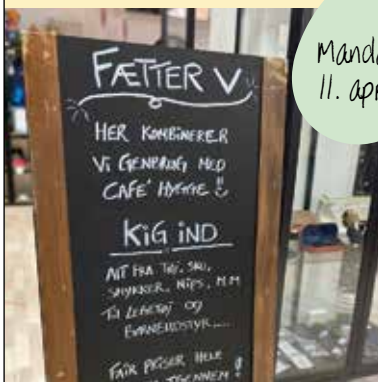 Manda
11. apr
FÆTTER V
HER KOMBINERER
Vi GENBRUG MED
CAFE' HYGGE
KiG iND
ALT FRA TØJ, SKO,
SMYKKER, NIPS, M.M
Til LEGETØJ OG
BØRNEUDSTYR.....
FAiR PRiSER HELE